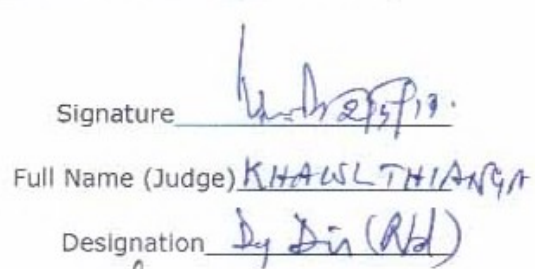 Signature 25/5/13.
Full Name (Judge) KHAWLTHIANGA
Designation Dy Dir (Rbl)